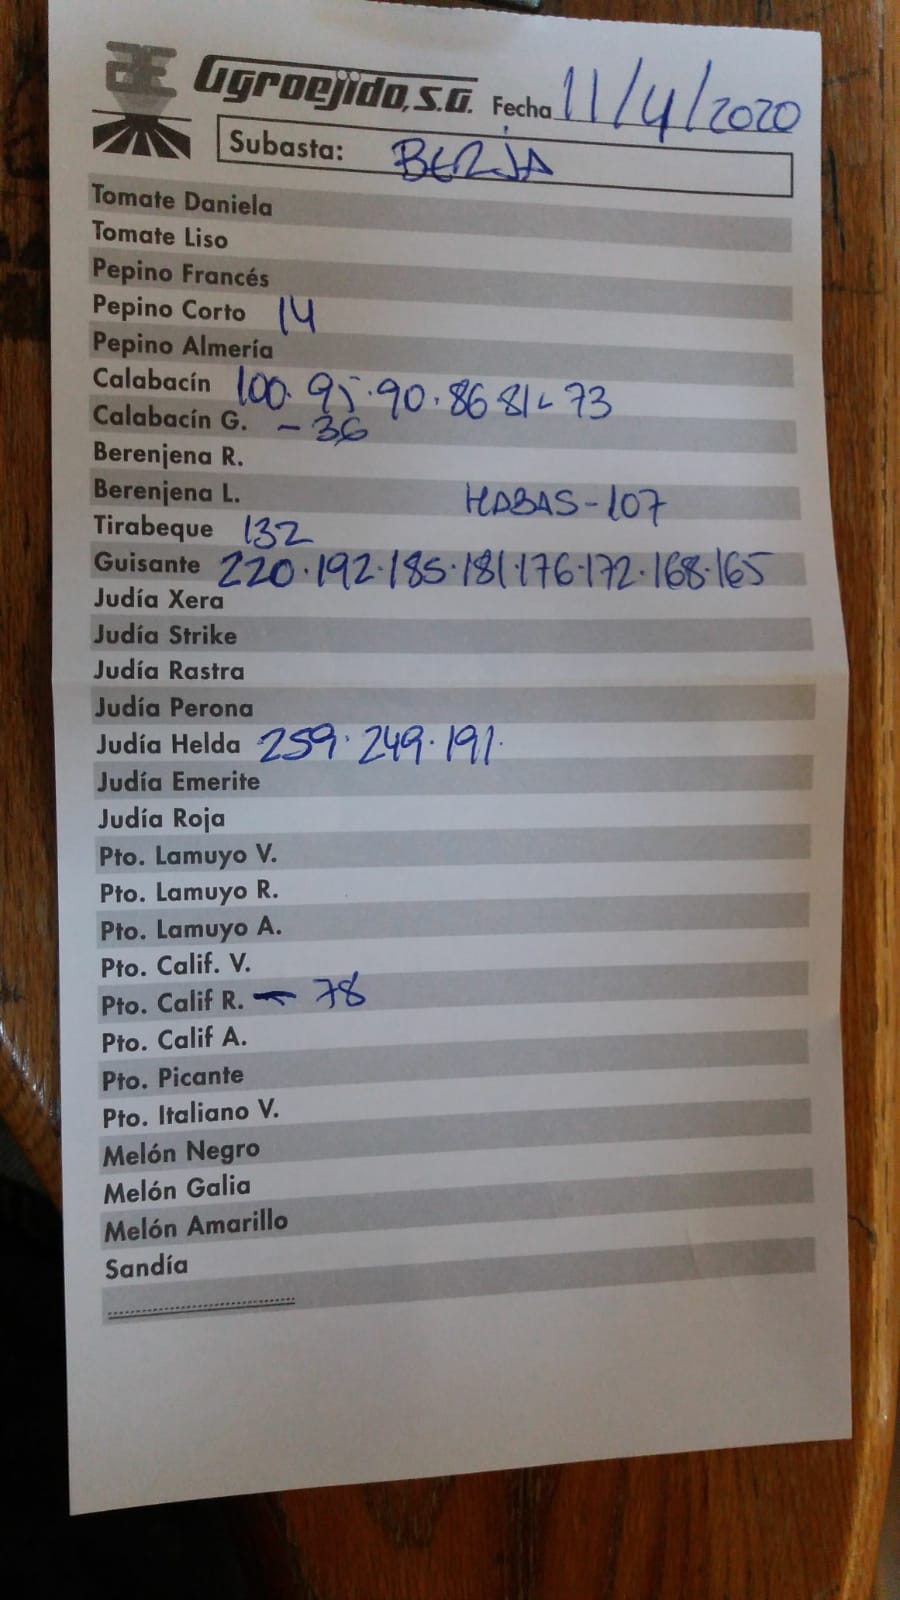 Agroejido, S.A. Fecha 11/4/2020
Subasta: BERJA
Tomate Daniela
Tomate Liso
Pepino Francés
Pepino Corto 14
Pepino Almería
Calabacín 100. 95. 90. 86 81 - 73
Calabacín G. - 36
Berenjena R.
Berenjena L. HABAS - 107
Tirabeque 132
Guisante 220. 192. 185. 181. 176. 172. 168. 165
Judía Xera
Judía Strike
Judía Rastra
Judía Perona
Judía Helda 259. 249. 191.
Judía Emerite
Judía Roja
Pto. Lamuyo V.
Pto. Lamuyo R.
Pto. Lamuyo A.
Pto. Calif. V.
Pto. Calif R. - 78
Pto. Calif A.
Pto. Picante
Pto. Italiano V.
Melón Negro
Melón Galia
Melón Amarillo
Sandía